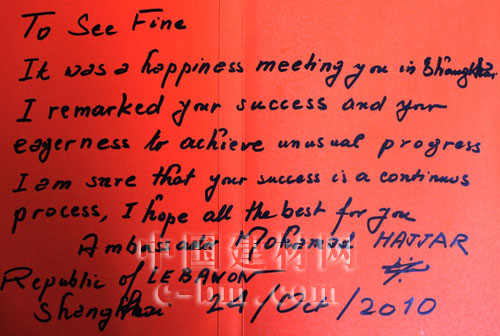 To See Fine
It was a happiness meeting you in Shanghai
I remarked your success and your
eagerness to achieve unusual progress
I am sure that your success is a continuous
process, I hope all the best for you
Ambassador Mohamad HAJJAR
Republic of LEBANON
Shanghai 24/Oct/2010
中国建材网
c-bm.com